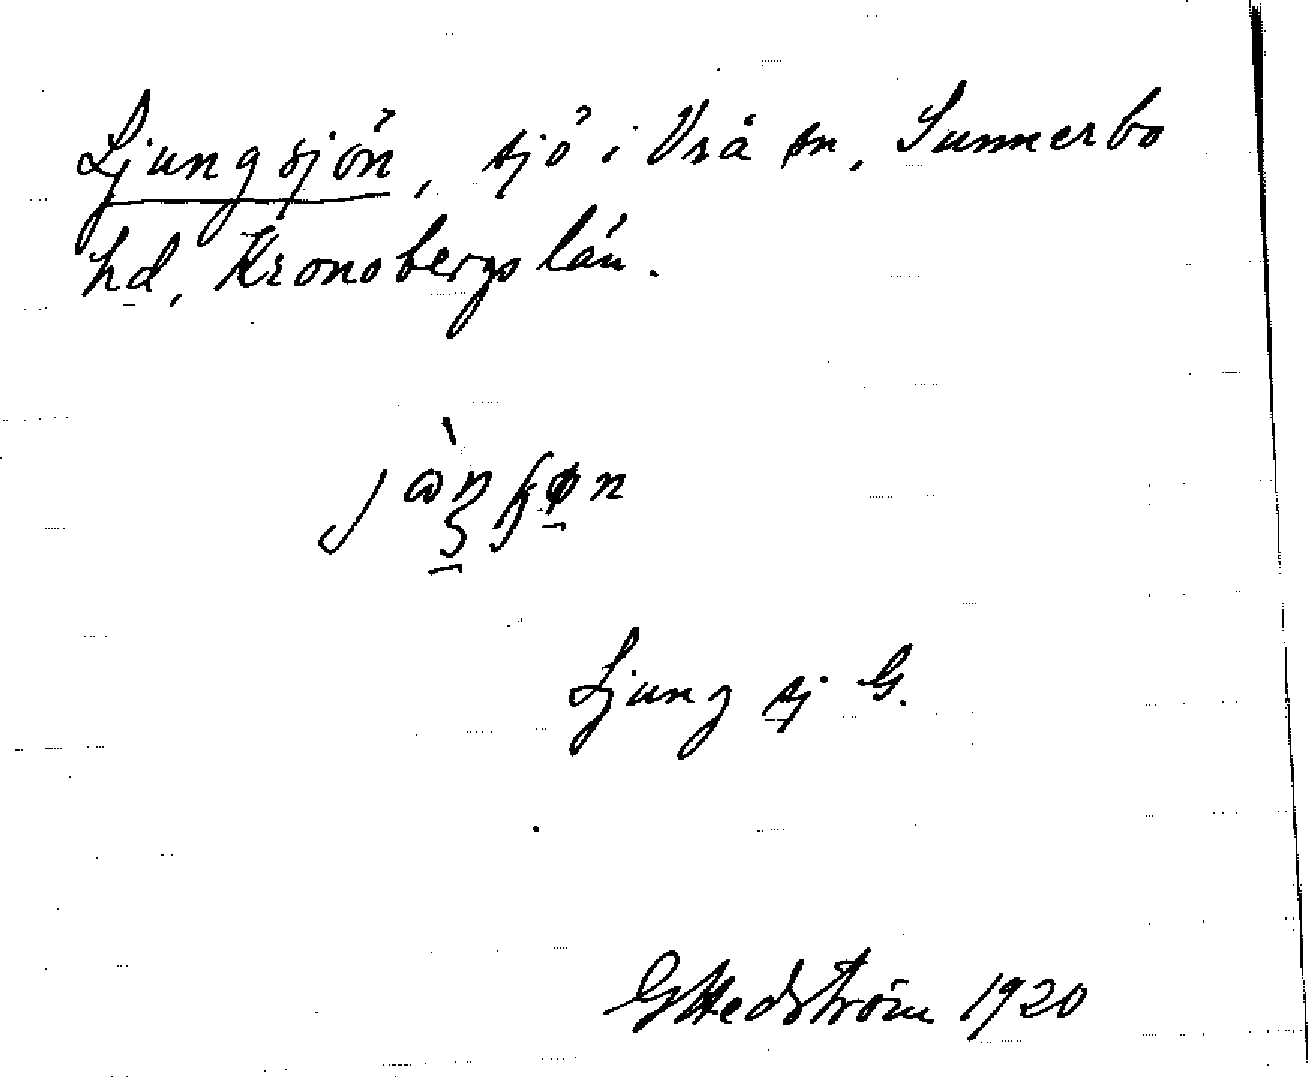 Ljungsjön, sjö i Vrå sn, Sunnerbo
hd, Kronobergs län.
Ljung sj G.
G Hedström 1920